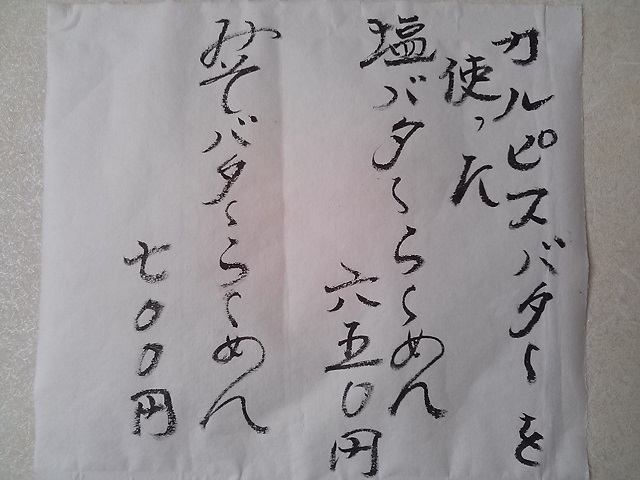 カルピスバターを
使った
塩バターらーめん
六五〇円
みそバターらーめん
七〇〇円